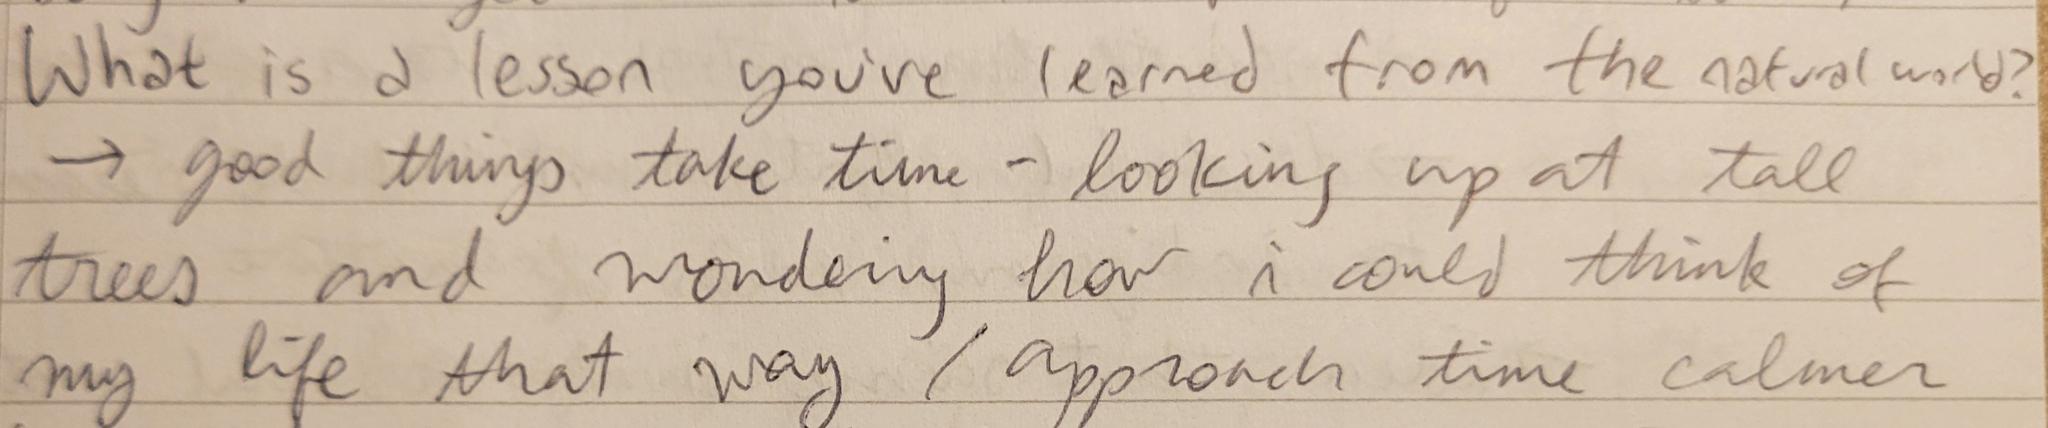 What is a lesson you've learned from the natural world?
→ good things take time - looking up at tall
trees and wondering how i could think of
my life that way / approach time calmer